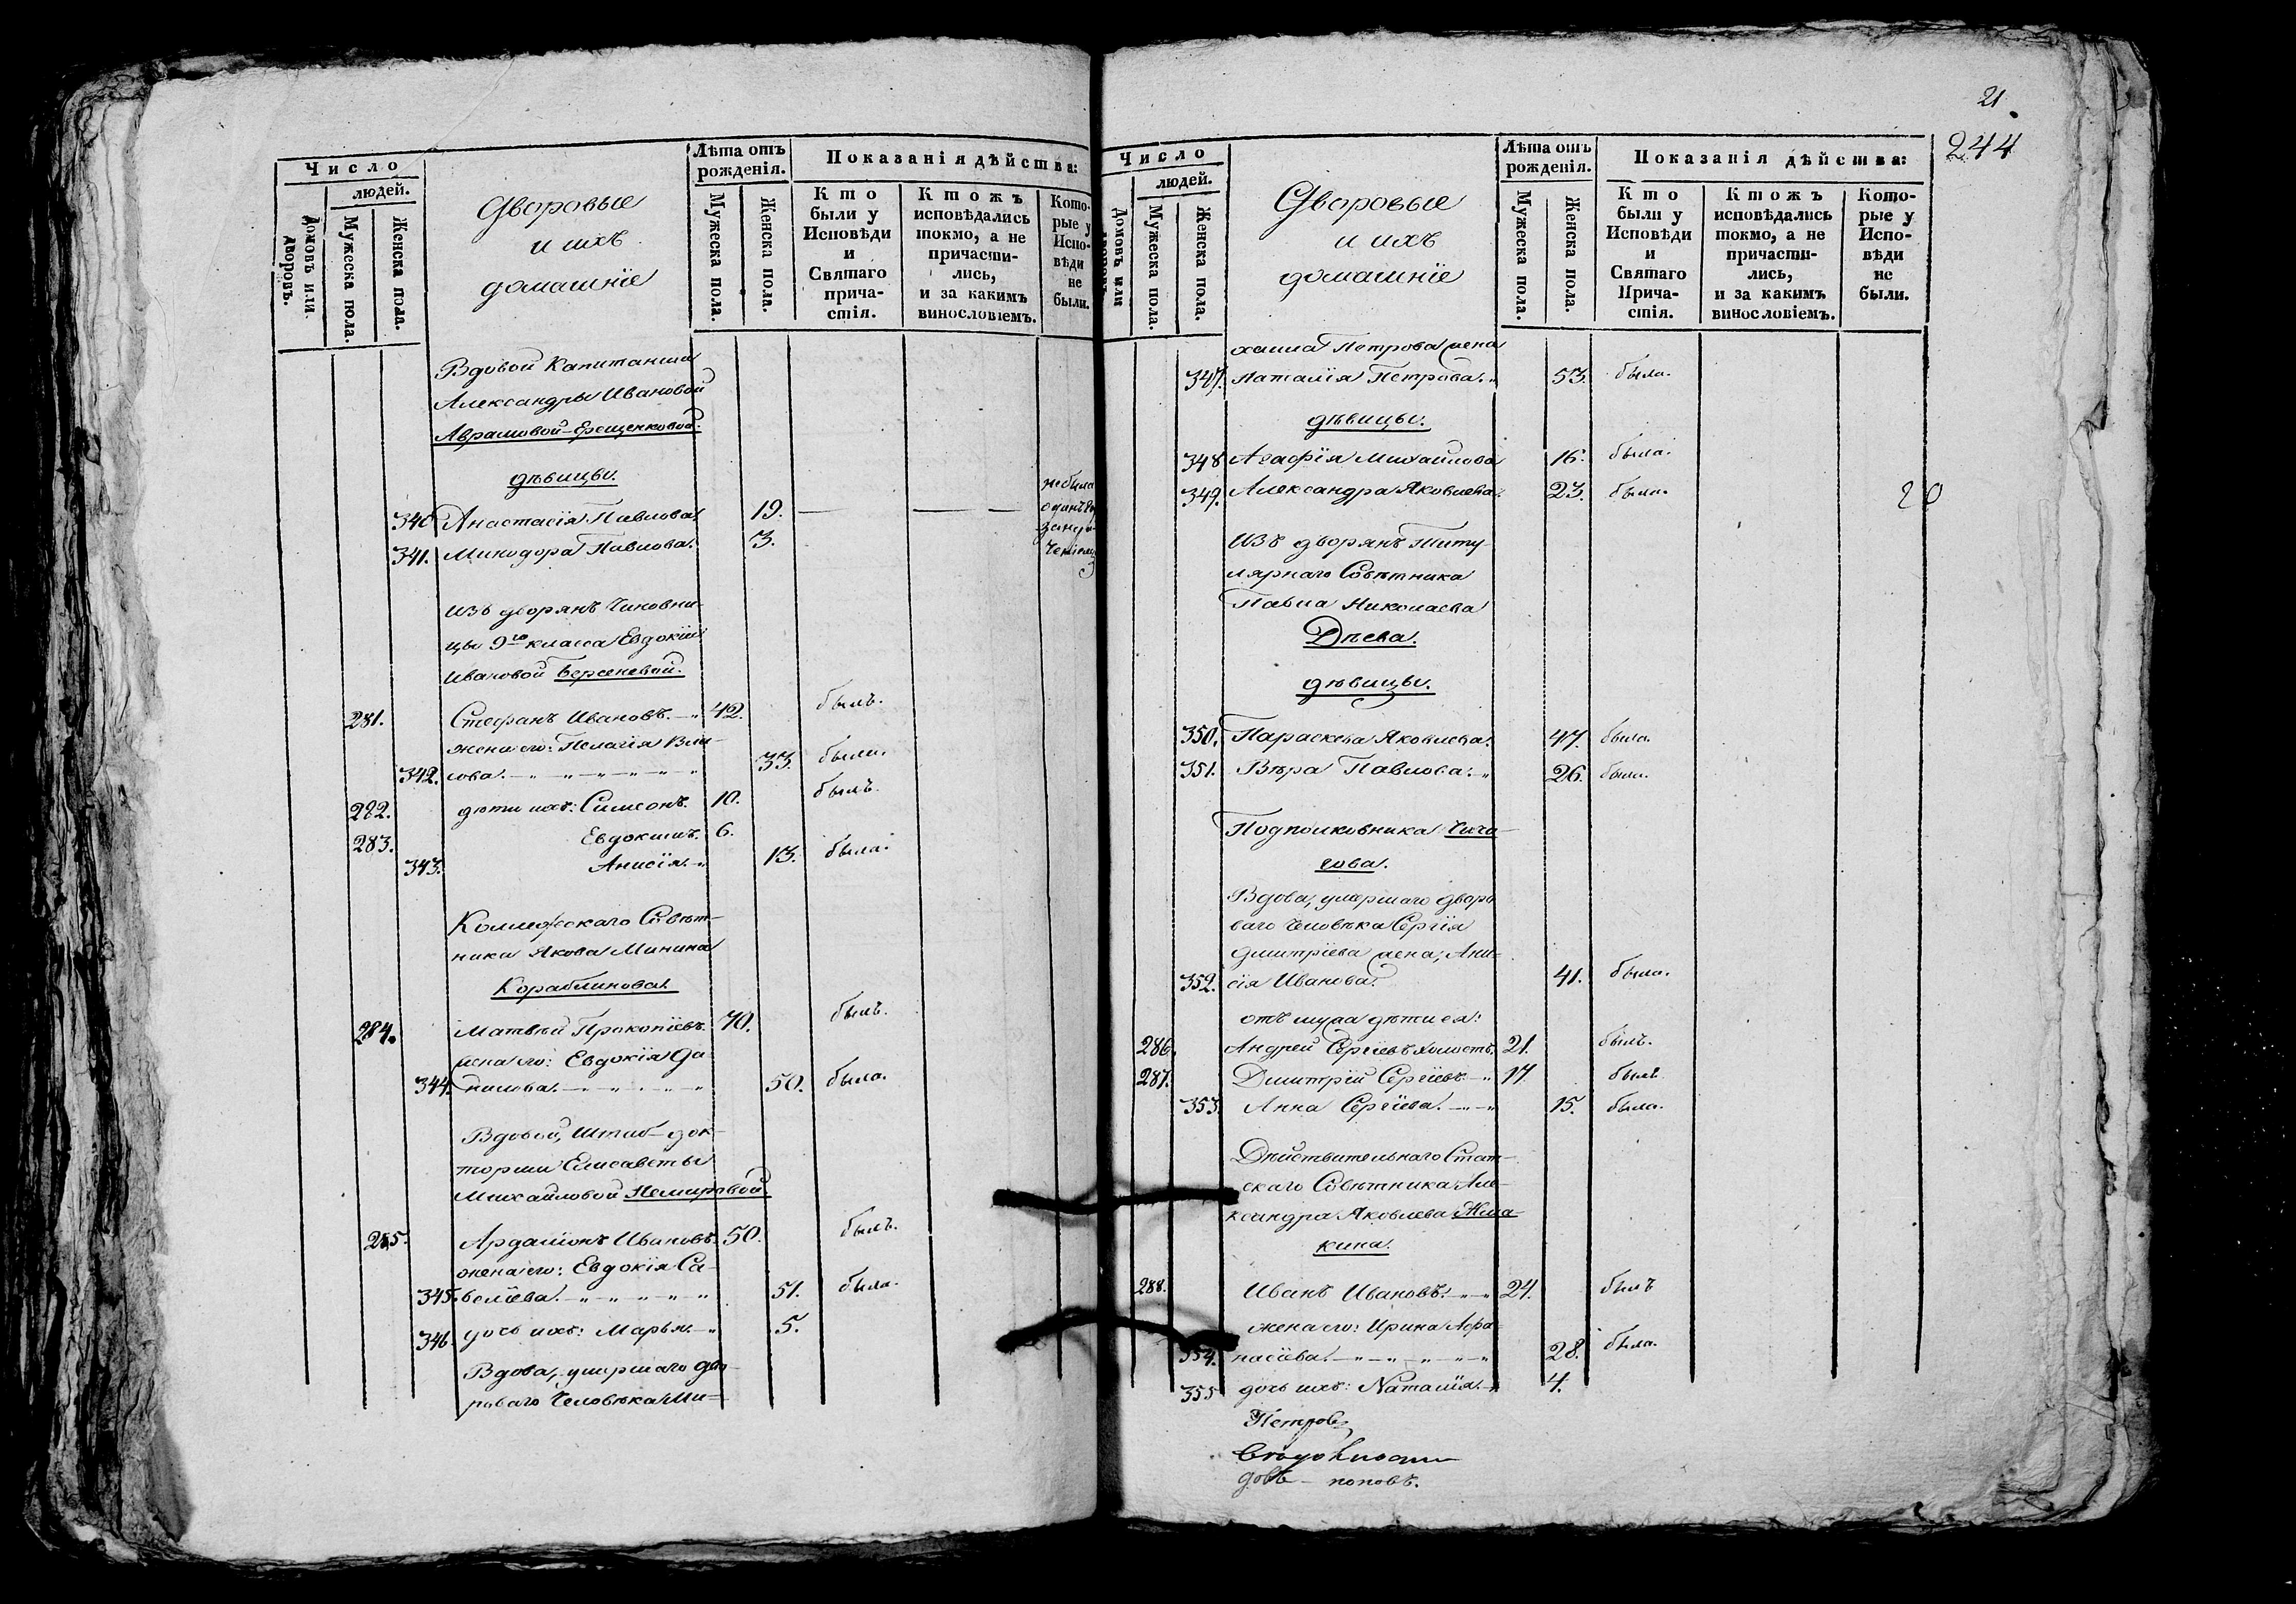 Число
людей.
Домовъ или дворовъ.
Мужеска пола.
Женска пола.
Дворовые
и ихъ
домашніе
Лѣта отъ
рожденія.
Мужеска пола.
Женска пола.
Показанія дѣйства:
Кто
были у
Исповѣди
и
Святаго
прича-
стія.
Ктожъ
исповѣдались
токмо, а не
причасти-
лись,
и за какимъ
винословіемъ.
Кото-
рые у
Испо-
вѣди
не
были.
Вдовой Капитанши
Александры Ивановой
Аврамовой-Ерещенковой.
дѣвицы.
340 Анастасія Павлова. 19. — — —
не была
341. Минодора Павлова. 3.
изъ дворянъ Чиновни-
цы 9го класса Евдокіи
Ивановой Берсеневой.
281. Стефанъ Ивановъ. 42. былъ.
жена его: Пелагія Вла-
342. сова. 33. была.
282. дѣти ихъ: Симеонъ. 10. былъ.
283. Евдокимъ. 6.
343. Анисія. 13. была.
Коллежскаго Совѣт-
ника Якова Минина
Кораблинова.
284. Матвѣй Прокопіевъ. 70. былъ.
жена его: Евдокія Да-
344. нилова. 50. была.
Вдовой, Штаб-док-
торши Елисаветы
Михайловой Немировой.
285. Ардаліонъ Ивановъ. 50. былъ.
жена его: Евдокія Са-
345. веліева. 51. была.
346. дочь ихъ: Марья. 5.
Вдова, умершаго дво-
роваго Человѣка Ми-
21.
244
Число
людей.
Домовъ или дворовъ.
Мужеска пола.
Женска пола.
Дворовые
и ихъ
домашніе
Лѣта отъ
рожденія.
Мужеска пола.
Женска пола.
Показанія дѣйства:
Кто
были у
Исповѣди
и
Святаго
Прича-
стія.
Ктожъ
исповѣдались
токмо, а не
причасти-
лись,
и за какимъ
винословіемъ.
Кото-
рые у
Испо-
вѣди
не
были.
хаила Петрова жена
347. Наталія Петрова. 53. была.
дѣвицы.
348 Агафія Михайлова 16. была.
349. Александра Яковлева. 23. была.
20
Изъ дворянъ Титу-
лярнаго Совѣтника
Павла Николаева
Дѣева.
дѣвицы.
350. Параскева Яковлева. 47. была.
351. Вѣра Павлова. 26. была.
Подполковника Чича-
гова.
Вдова, умершаго дворо
ваго Человѣка Сергія
Дмитріева жена, Ани-
352. сія Иванова. 41. была.
отъ мужа дѣти ея:
286. Андрей Сергіевъ холостъ. 21. былъ.
287. Дмитрій Сергіевъ. 17. былъ.
353. Анна Сергіева. 15. была.
Дѣйствительнаго Стат-
скаго Совѣтника Але-
ксандра Яковлева Жма-
кина.
288. Иванъ Ивановъ. 24. былъ
жена его: Ирина Афа-
354. насіева. 28. была.
355 дочь ихъ: Наталія. 4.